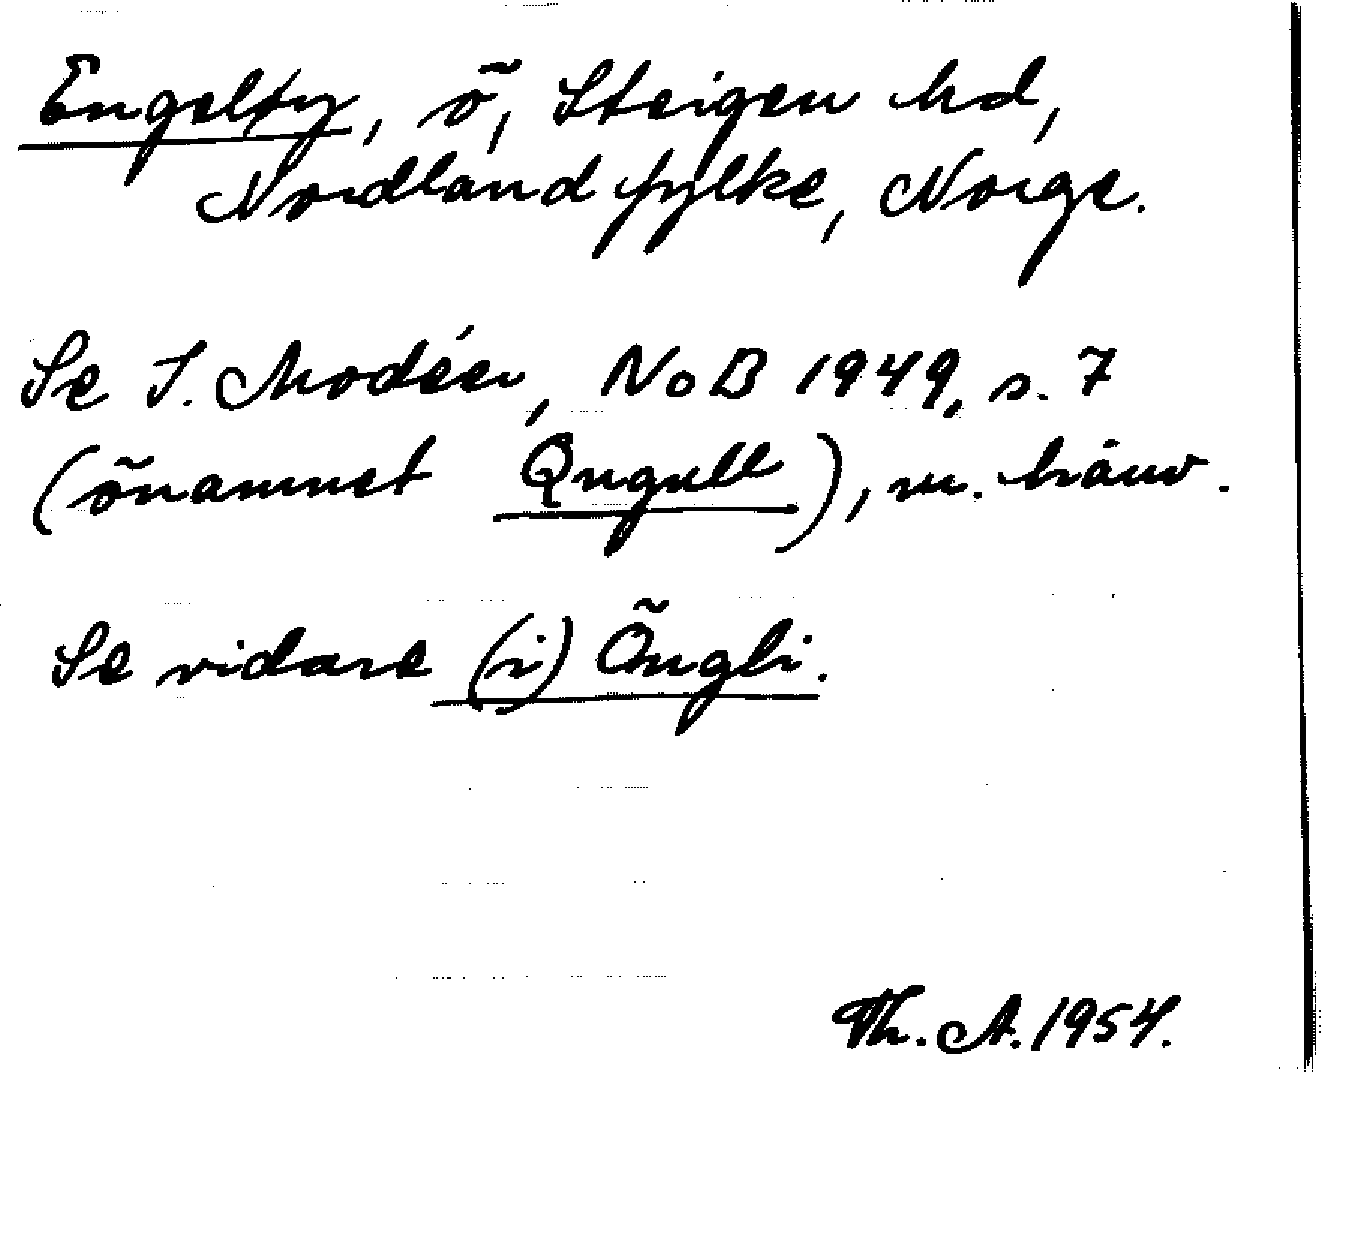 Engelöy, ö, Steigen hd,
Nordland fylke, Norge.
Se I. Modéer, NoB 1949, s. 7
(önamnet Ǫngull), m. hänv.
Se vidare (i) Öngli.
Th. A. 1954.